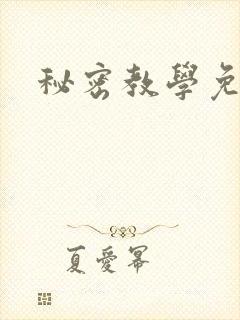 秘密教學免
夏愛幂